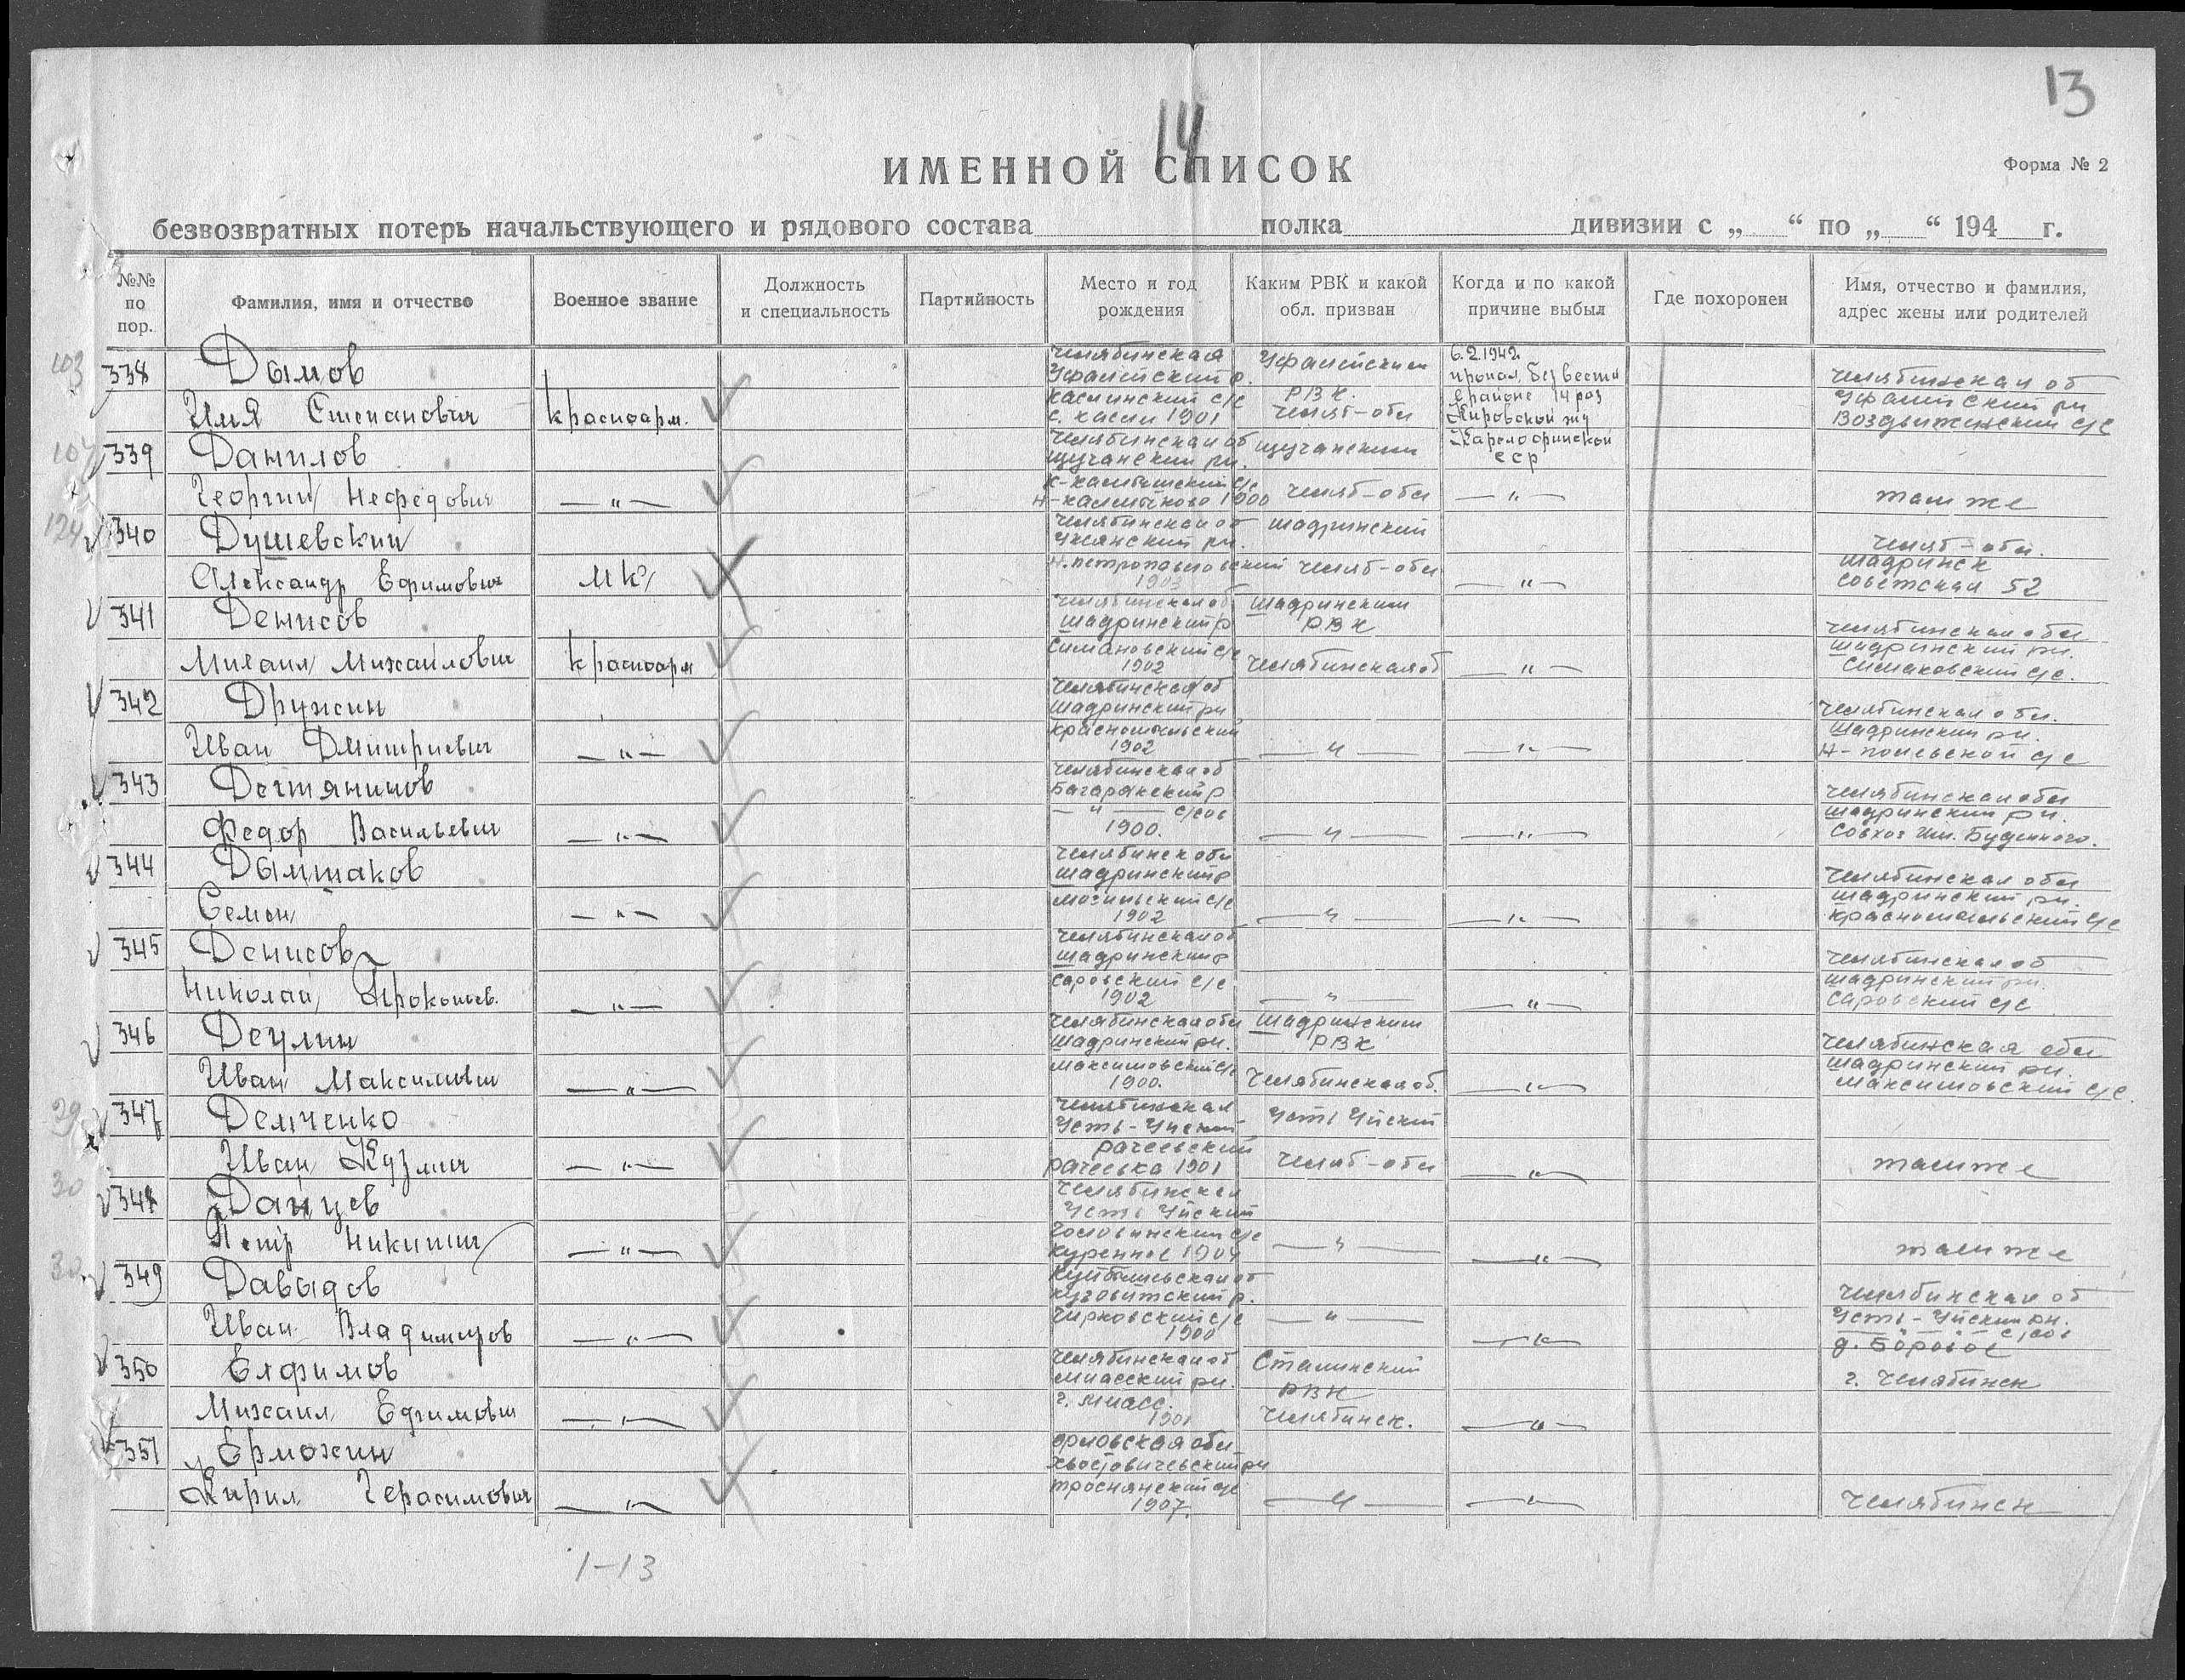 13
14
ИМЕННОЙ СПИСОК
Форма № 2
безвозвратных потерь начальствующего и рядового состава полка дивизии с „ “ по „ “ 194 г.
№№ по пор.
Фамилия, имя и отчество
Военное звание
Должность и специальность
Партийность
Место и год рождения
Каким РВК и какой обл. призван
Когда и по какой причине выбыл
Где похоронен
Имя, отчество и фамилия, адрес жены или родителей
103
338 Дымов
Илья Степанович красноарм.
Челябинская
Уфалейский р.
Каслинский с/с
с. Касли 1901
Уфалейским
РВК.
Челяб-обл
6.2.1942
пропал без вести
в районе 14 раз
Кировской жд
Карелофинской
ССР
Челябинская об
Уфалейский рн
Воздвиженский с/с
107
339 Данилов
Георгий Нефедович — " —
Челябинская об
Щучанский рн.
1900
Щучанским
Челяб-обл
— " —
там же
124
340 Душевский
Александр Ефимович МК/
Челябинская об
рн.
1903
Шадринский
Челяб-обл
— " —
Челяб-обл.
Шадринск
Советская 52
341 Денисов
Михаил Михайлович красноарм
Челябинская об
Шадринский р
с/с
1902
Шадринским
РВК
Челябинская об
— " —
Челябинская обл
Шадринский рн.
с/с.
342 Дружин
Иван Дмитриевич — " —
Челябинская об
Шадринский рн
1902
— " —
— " —
Челябинская обл.
Шадринский рн.
с/с
343 Дегтянников
Федор Васильевич — " —
Челябинская об
Багарякский р
— " — с/сов
1900.
— " —
— " —
Челябинская обл
Шадринский рн.
Совхоз им. Буденного.
344 Дымшаков
Семен — " —
Челябинск обл
Шадринский р
с/с
1902
— " —
— " —
Челябинская обл
Шадринский рн.
с/с
345 Денисов
Николай Прокопьев. — " —
Челябинская об
Шадринский р
Саровский с/с
1902
— " —
— " —
Челябинская об
Шадринский рн.
Саровский с/с
346 Деулин
Иван Максимович — " —
Челябинская обл
Шадринский рн.
Максимовский с/с
1900.
Шадринским
РВК
Челябинская об.
— " —
Челябинская обл
Шадринский рн.
Максимовский с/с.
29
347 Демченко
Иван Кузмич — " —
Челябинская
Усть-Уйский
Рачеевский
1901
Усть Уйский
Челяб-обл
— " —
там же
30
348 Данцев
Петр Никитич — " —
Челябинская
Усть Уйский
с/с
1904
— " —
— " —
там же
30
349 Давыдов
Иван Владимиров — " —
Куйбышевская об
р.
Чирковский с/с
1900
— " —
— " —
Челябинская об
Усть-Уйский рн.
с/сов
д. Боровое
350 Елфимов
Михаил Ефимович — " —
Челябинская об
Миасский рн.
г. Миасс.
1901
Сталинский
РВК
Челябинск.
— " —
г. Челябинск
351 Ермохин
Кирил Герасимович — " —
Орловская обл
рн
Троснянский с/с
1907.
— " —
— " —
Челябинск
1-13